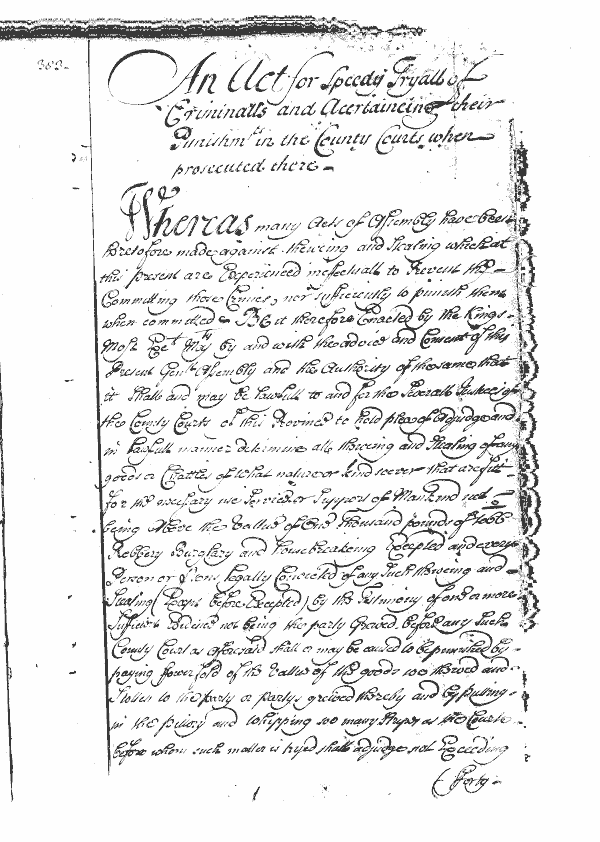 383.
An Act for Speedy Tryall of
Criminalls and Acertaineing their
Punishmt. in the County Courts when
prosecuted there
Whereas many Acts of Assembly have been
heretofore made against theiving and Stealing which at
this present are Experienced ineffectuall to Prevent the
Committing those Crimes, nor sufficiently to punish them
when committed Be it therefore Enacted by the Kings
Most Exct. Maty. by and with the advice and Consent of this
Present Genll. Assembly and the Authority of the same, that
it shall and may be lawfull to and for the Severall Justices of
the County Courts of this Province to hold plea of adjudge and
in lawfull manner determine all theiving and Stealing of any
goods or Chattles of what nature or kind soever that are fitt
for the necessary use Service or Support of Mankind not
being Above the Vallue of One Thousand pounds of Tobb
Robbery Burglary and housebreaking Excepted and every
Person or Psons legally Convicted of any Such theiving and
Stealing (Except before Excepted) by the Testimony of one or more
Sufficient Evidence not being the party Grieved before any Such
County Court as aforesaid shall or may be caused to be punished by
paying fower fold of the Vallue of the goods so theived and
Stollen to the party or partys grieved thereby and by putting
in the pillory and whipping so many Stripes as the Court
before whom such matter is tryed shall adjudge not Exceeding
fforty